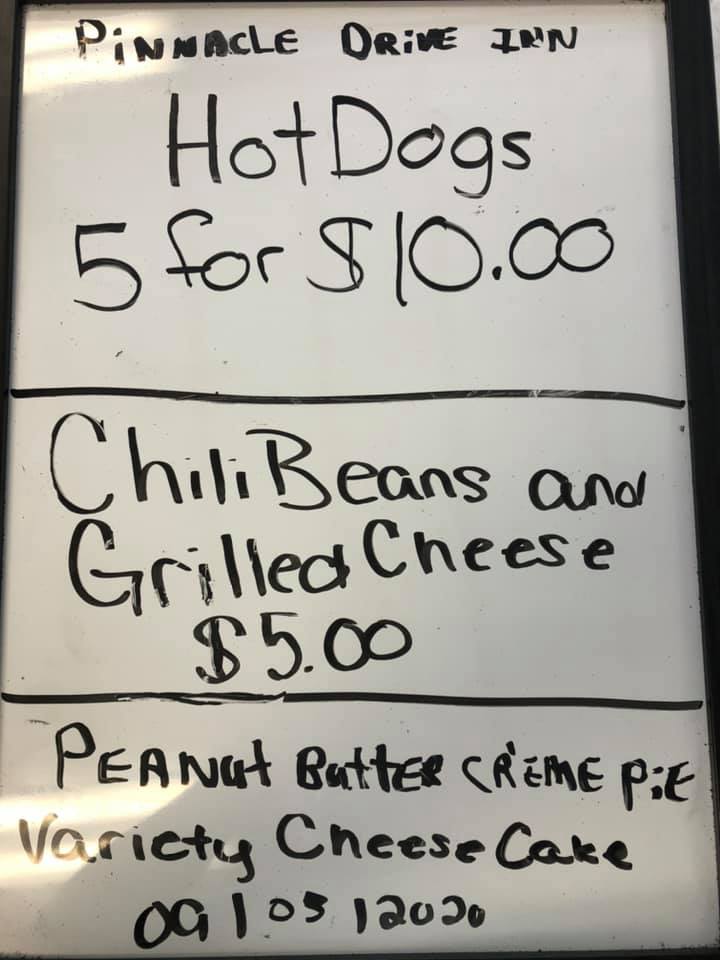 PiNNACLE DRiVE INN
Hot Dogs
5 for $10.00
Chili Beans and
Grilled Cheese
$5.00
PEANut ButtER CRÈME PiE
Variety Cheese Cake
09/05/2020